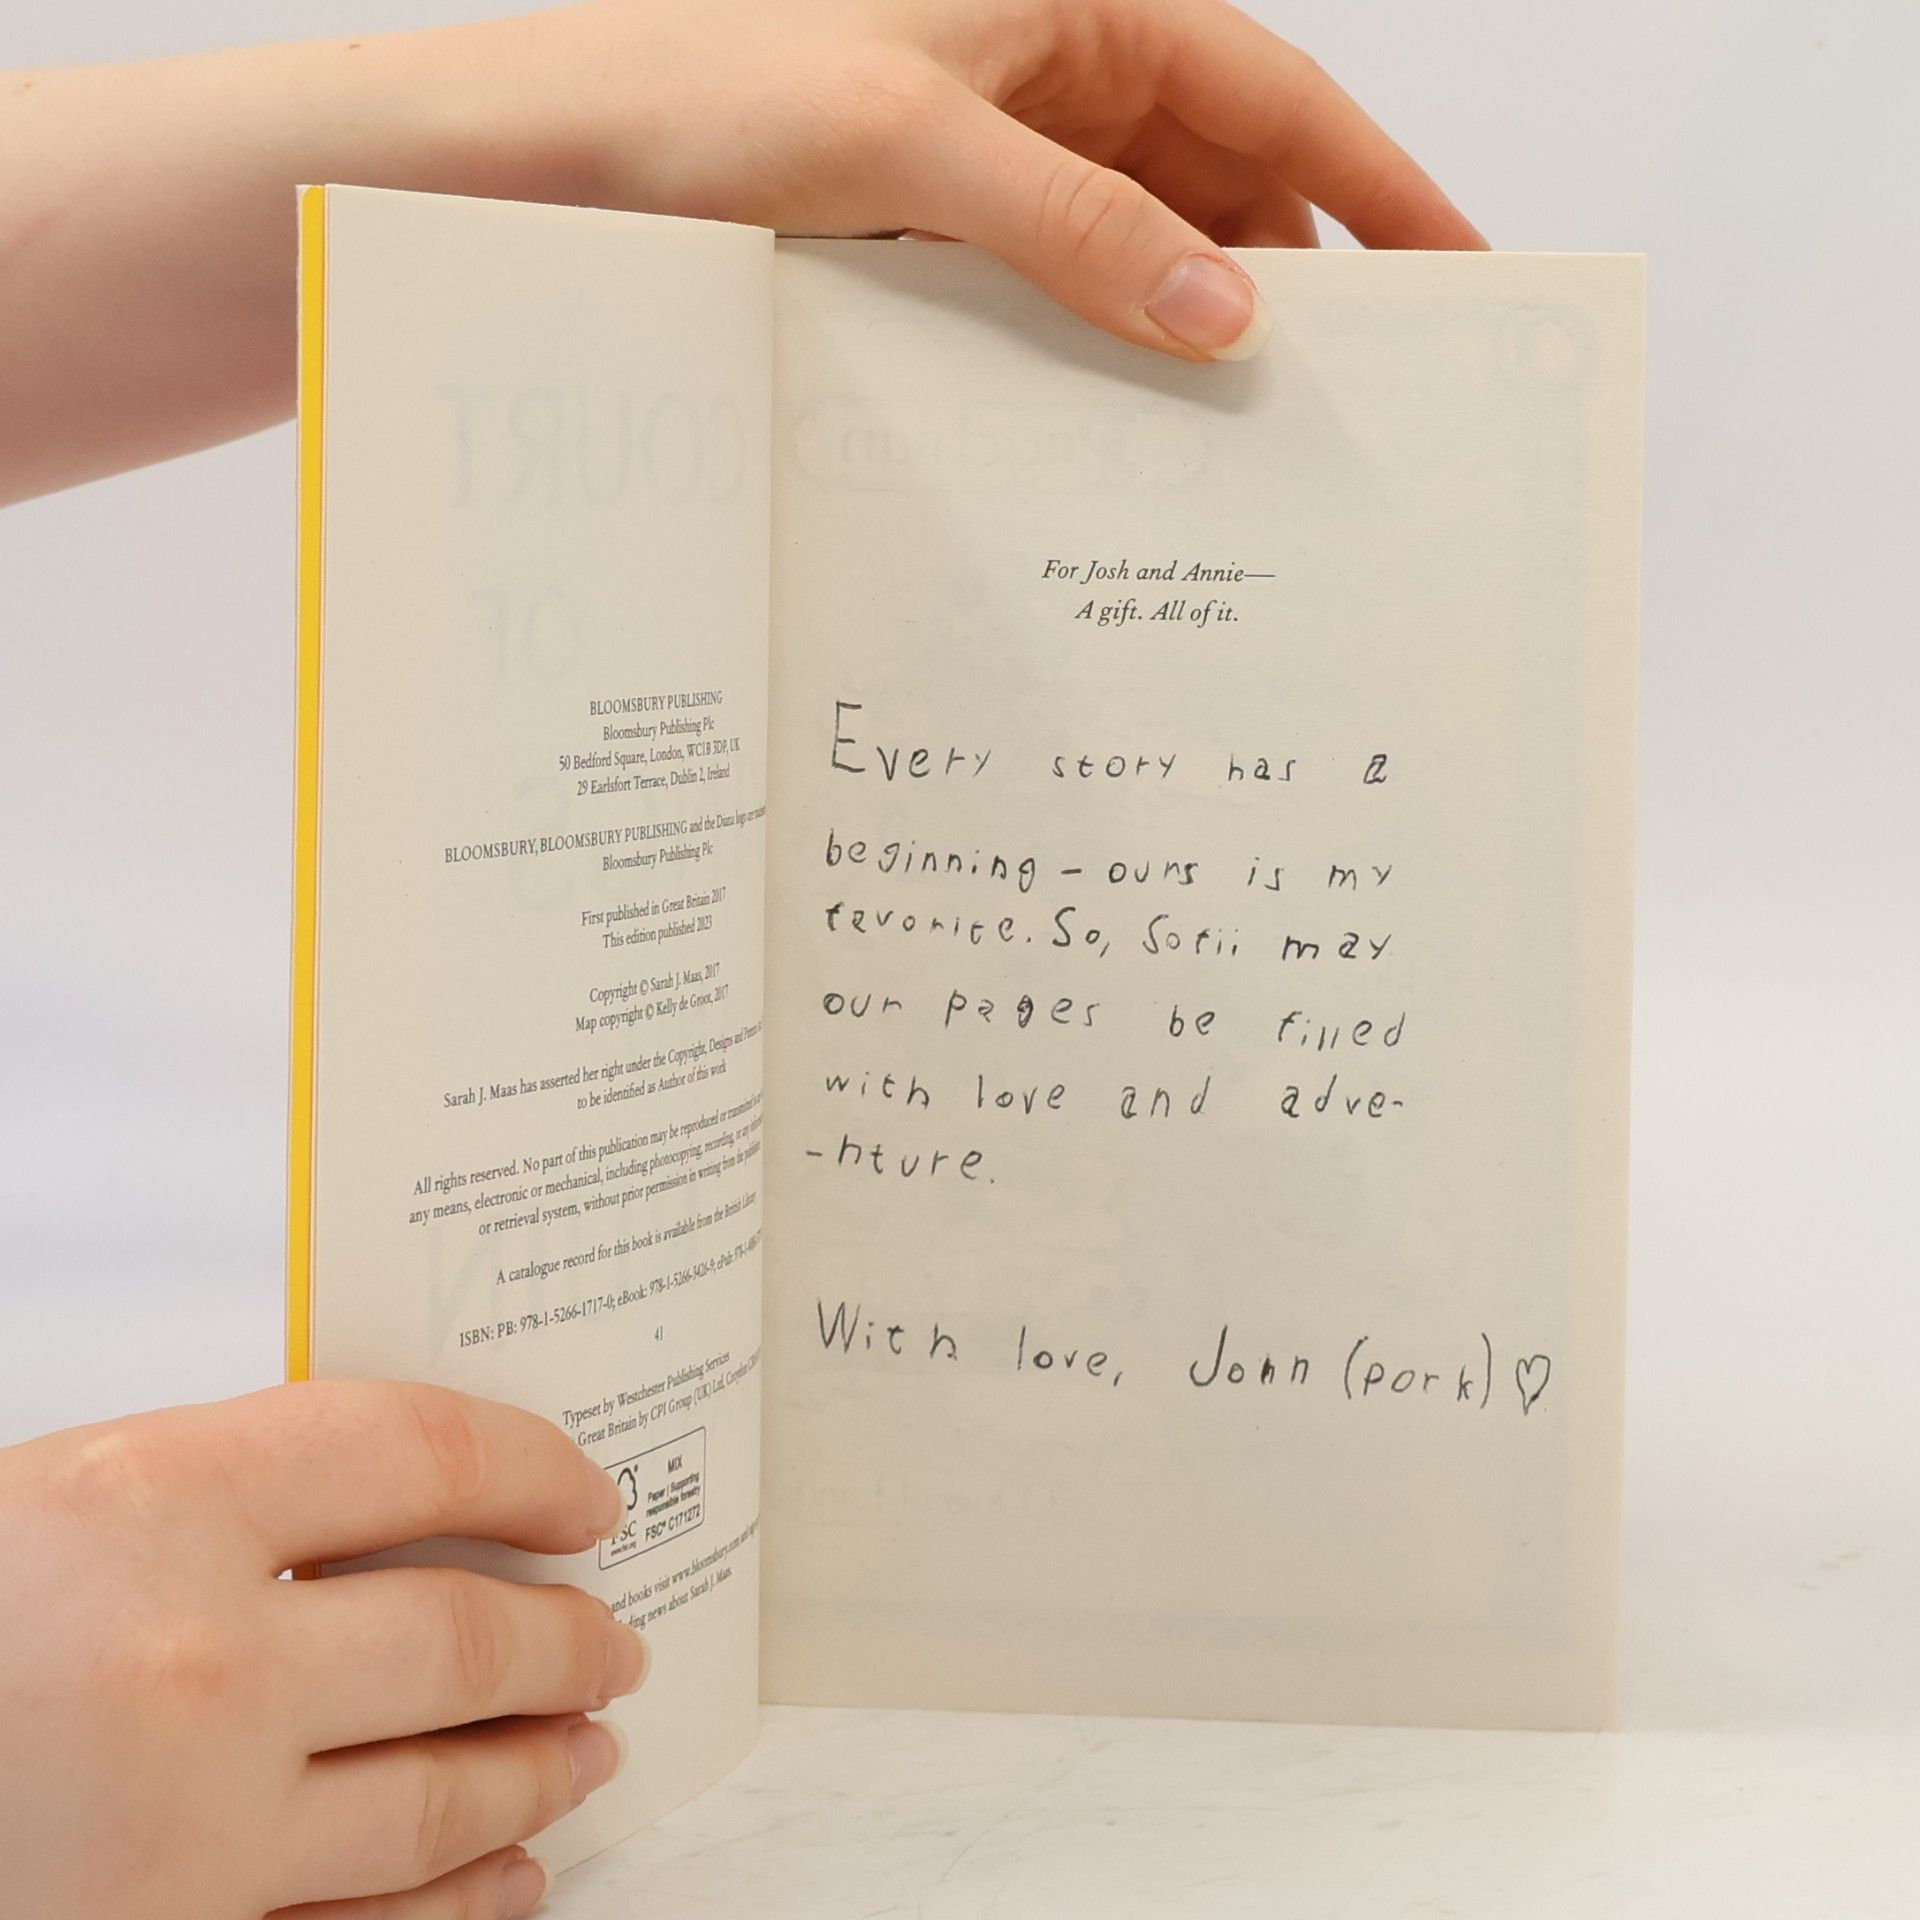 BLOOMSBURY PUBLISHING
Bloomsbury Publishing Plc
50 Bedford Square, London, WC1B 3DP, UK
29 Earlsfort Terrace, Dublin 2, Ireland
BLOOMSBURY, BLOOMSBURY PUBLISHING and the Diana logo are
Bloomsbury Publishing Plc
First published in Great Britain 2017
This edition published 2023
Copyright © Sarah J. Maas, 2017
Map copyright © Kelly de Groot, 2017
Sarah J. Maas has asserted her right under the Copyright, Designs and Patents
to be identified as Author of this work
All rights reserved. No part of this publication may be reproduced or transmitted
any means, electronic or mechanical, including photocopying, recording, or any
or retrieval system, without prior permission in writing from the
A catalogue record for this book is available from the British Library
ISBN: PB: 978-1-5266-1717-0; eBook: 978-1-5266-3426-9; ePub:
41
Typeset by Westchester Publishing Services
Great Britain by CPI Group (UK) Ltd, Croydon
MIX
Paper | Supporting
responsible forestry
FSC
www.fsc.org
FSC® C171272
and books visit www.bloomsbury.com and
news about Sarah J. Maas.
For Josh and Annie—
A gift. All of it.
Every story has a
beginning - ours is my
favorite. So, Sofii may
our pages be filled
with love and adve-
-nture.
With love, John (pork) ♡